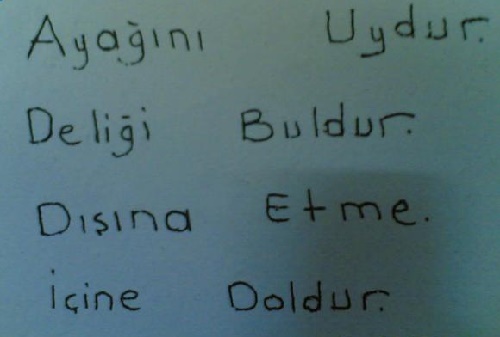 Ayağını Uydur.
Deliği Buldur.
Dışına Etme.
İçine Doldur.